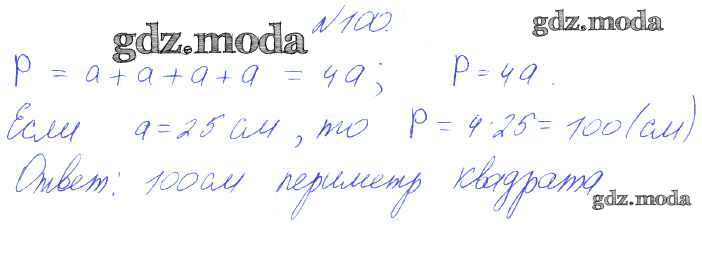 №100.
gdz.moda
gdz.moda
P = a+a+a+a = 4a; P=4a.
Если a=25 см, то P = 4·25=100(см)
Ответ: 100см периметр квадрата
gdz.moda